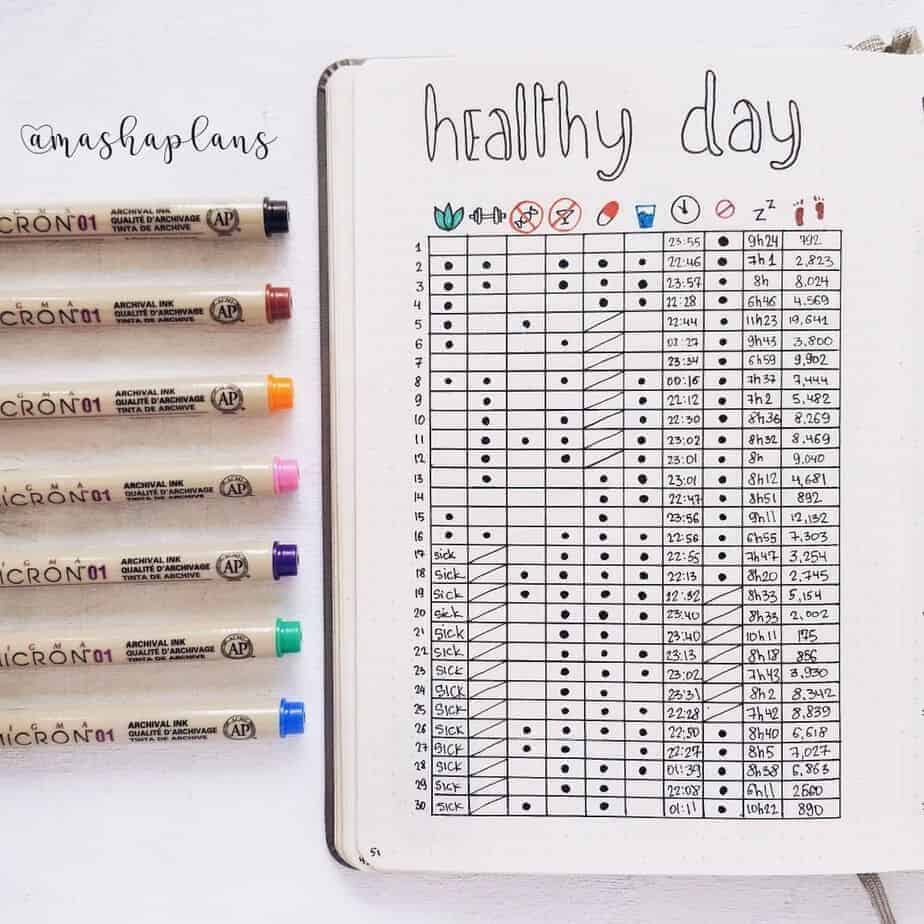 healthy day
@mashaplans
CRON 01 ARCHIVAL INK QUALITÉ D'ARCHIVAGE TINTA DE ARCHIVE AP
CRON 01 ARCHIVAL INK QUALITÉ D'ARCHIVAGE TINTA DE ARCHIVE AP
CRON 01 ARCHIVAL INK QUALITÉ D'ARCHIVAGE TINTA DE ARCHIVE AP
MICRON 01 ARCHIVAL INK QUALITÉ D'ARCHIVAGE TINTA DE ARCHIVE AP
IGMA MICRON 01 ARCHIVAL INK QUALITÉ D'ARCHIVAGE TINTA DE ARCHIVE AP
IGMA MICRON 01 ARCHIVAL INK QUALITÉ D'ARCHIVAGE TINTA DE ARCHIVE AP
IGMA MICRON 01 ARCHIVAL INK QUALITÉ D'ARCHIVAGE TINTA DE ARCHIVE AP
zz
1 23:55 9h24 792
2 22:46 7h1 2,823
3 23:57 8h 8,024
4 22:28 6h46 4,569
5 22:44 11h23 19,641
6 :27 9h43 3,800
7 23:34 6h59 9,902
8 00:16 7h37 7,444
9 22:12 7h2 5,482
10 22:30 8h36 8,269
11 23:02 8h32 8,469
12 23:01 8h 9,040
13 23:01 8h12 4,681
14 22:47 8h51 892
15 23:56 9h11 12,132
16 22:56 6h55 7,303
17 sick 22:55 7h47 3,254
18 sick 22:13 8h20 2,745
19 sick 8h33 5,154
20 sick 23:40 8h33 2,002
21 sick 23:40 10h11 175
22 sick 23:13 8h18 856
23 sick 23:02 7h43 3,930
24 sick 23:31 8h2 8,342
25 sick 22:28 7h42 8,839
26 sick 22:50 8h40 6,618
27 sick 22:27 8h5 7,027
28 sick 01:39 8h38 6,863
29 sick 22:08 6h11 2560
30 sick 01:11 10h22 890
51